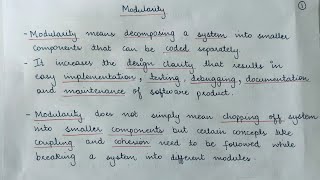 Modularity
1
- Modularity means decomposing a system into smaller
components that can be coded separately.
- It increases the design clarity that results in
easy implementation, testing, debugging, documentation
and maintenance of software product.
- Modularity does not simply mean chopping off system
into smaller components but certain concepts like
coupling and cohesion need to be followed while
breaking a system into different modules.